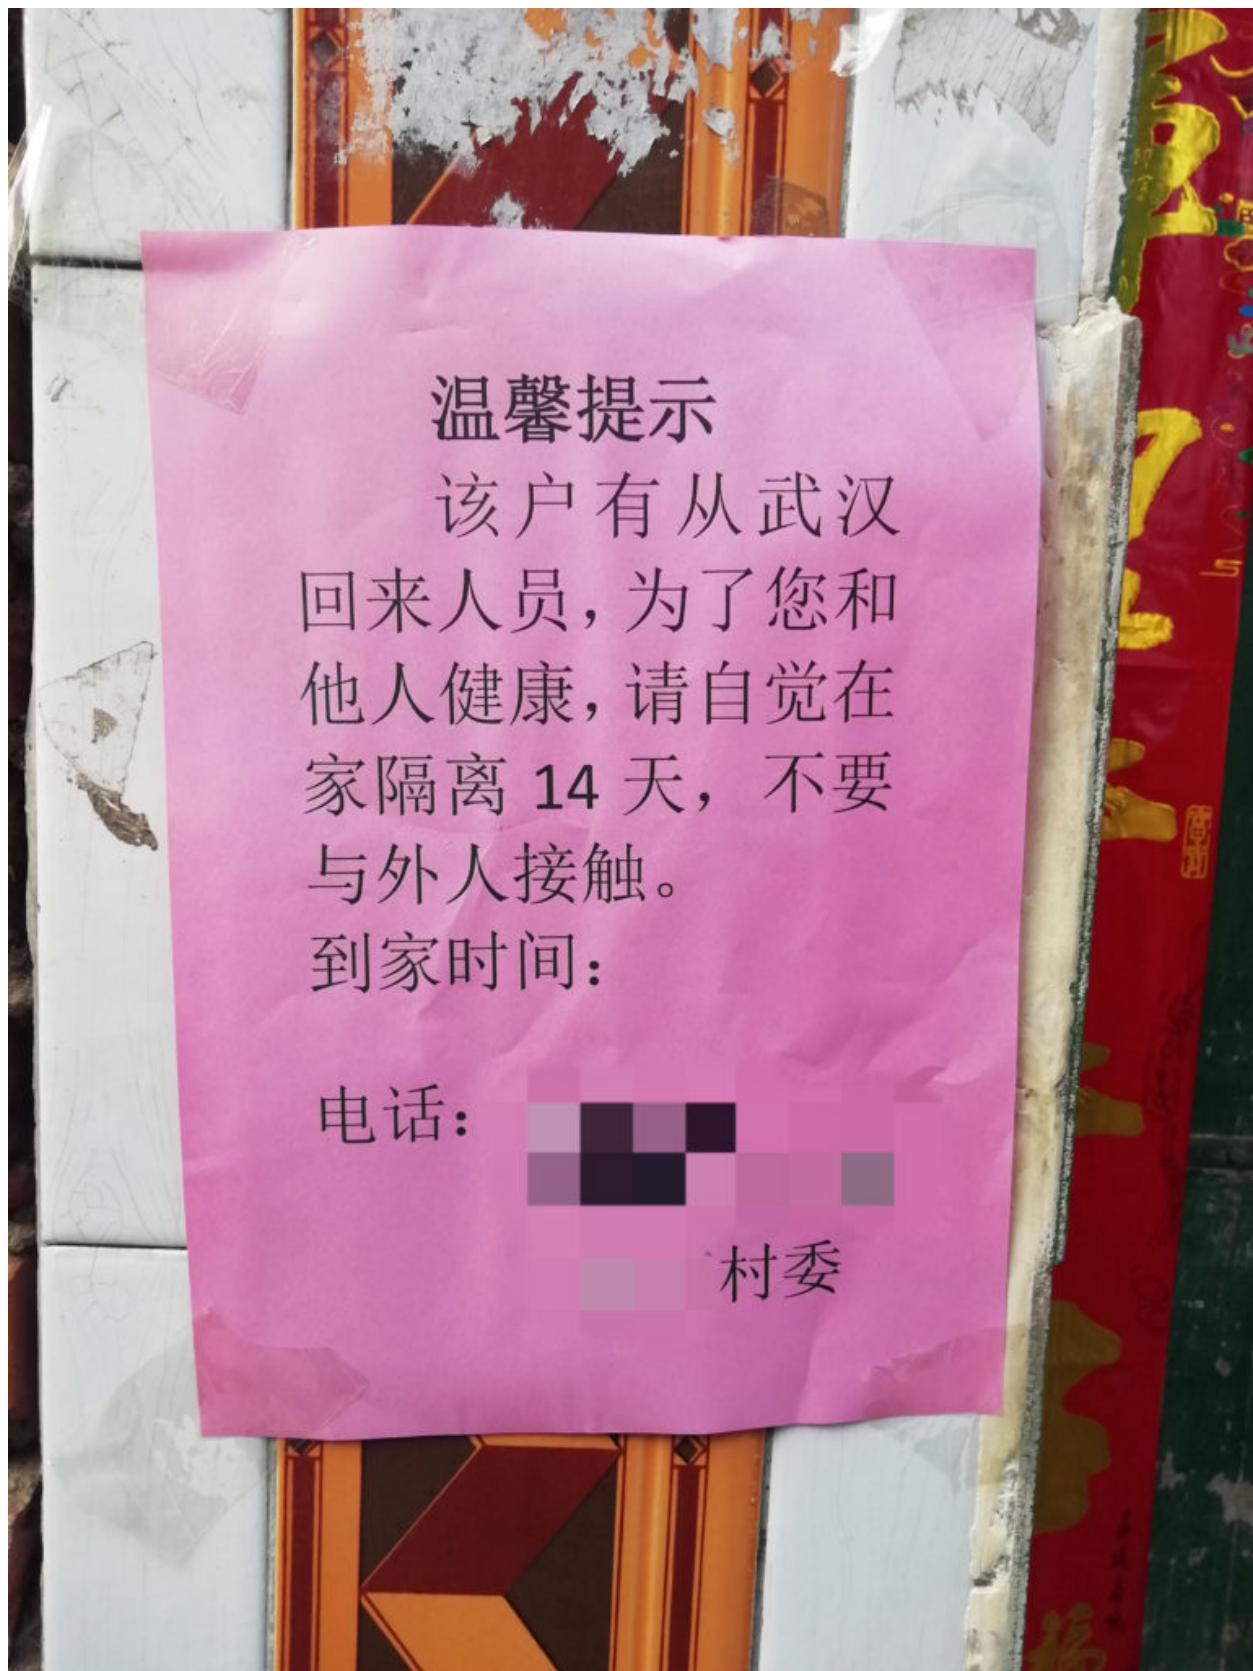 温馨提示
该户有从武汉
回来人员，为了您和
他人健康，请自觉在
家隔离 14 天，不要
与外人接触。
到家时间：
电话：
村委
福